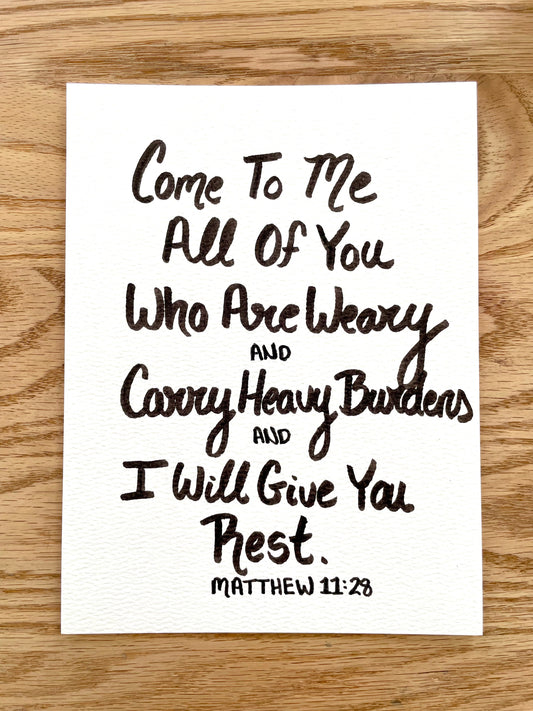 Come To Me
All Of You
Who Are Weary
AND
Carry Heavy Burdens
AND
I Will Give You
Rest.
MATTHEW 11:28